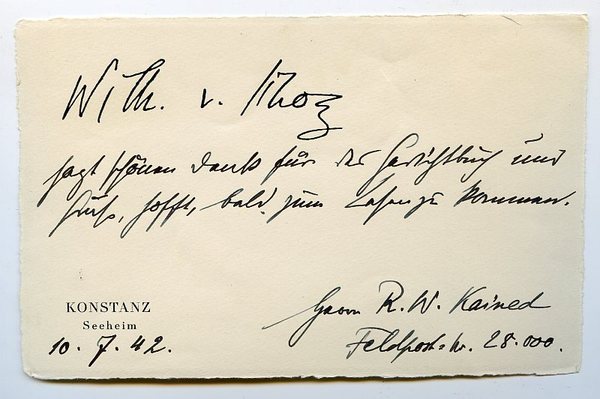 Wilh. v. Scholz
sagt schönen Dank für das Gedichtbuch und
Gruß, hofft, bald zum Lesen zu kommen.
KONSTANZ
Seeheim
10. 7. 42.
Herrn R. W. Kained
Feldpost-Nr. 28.000.